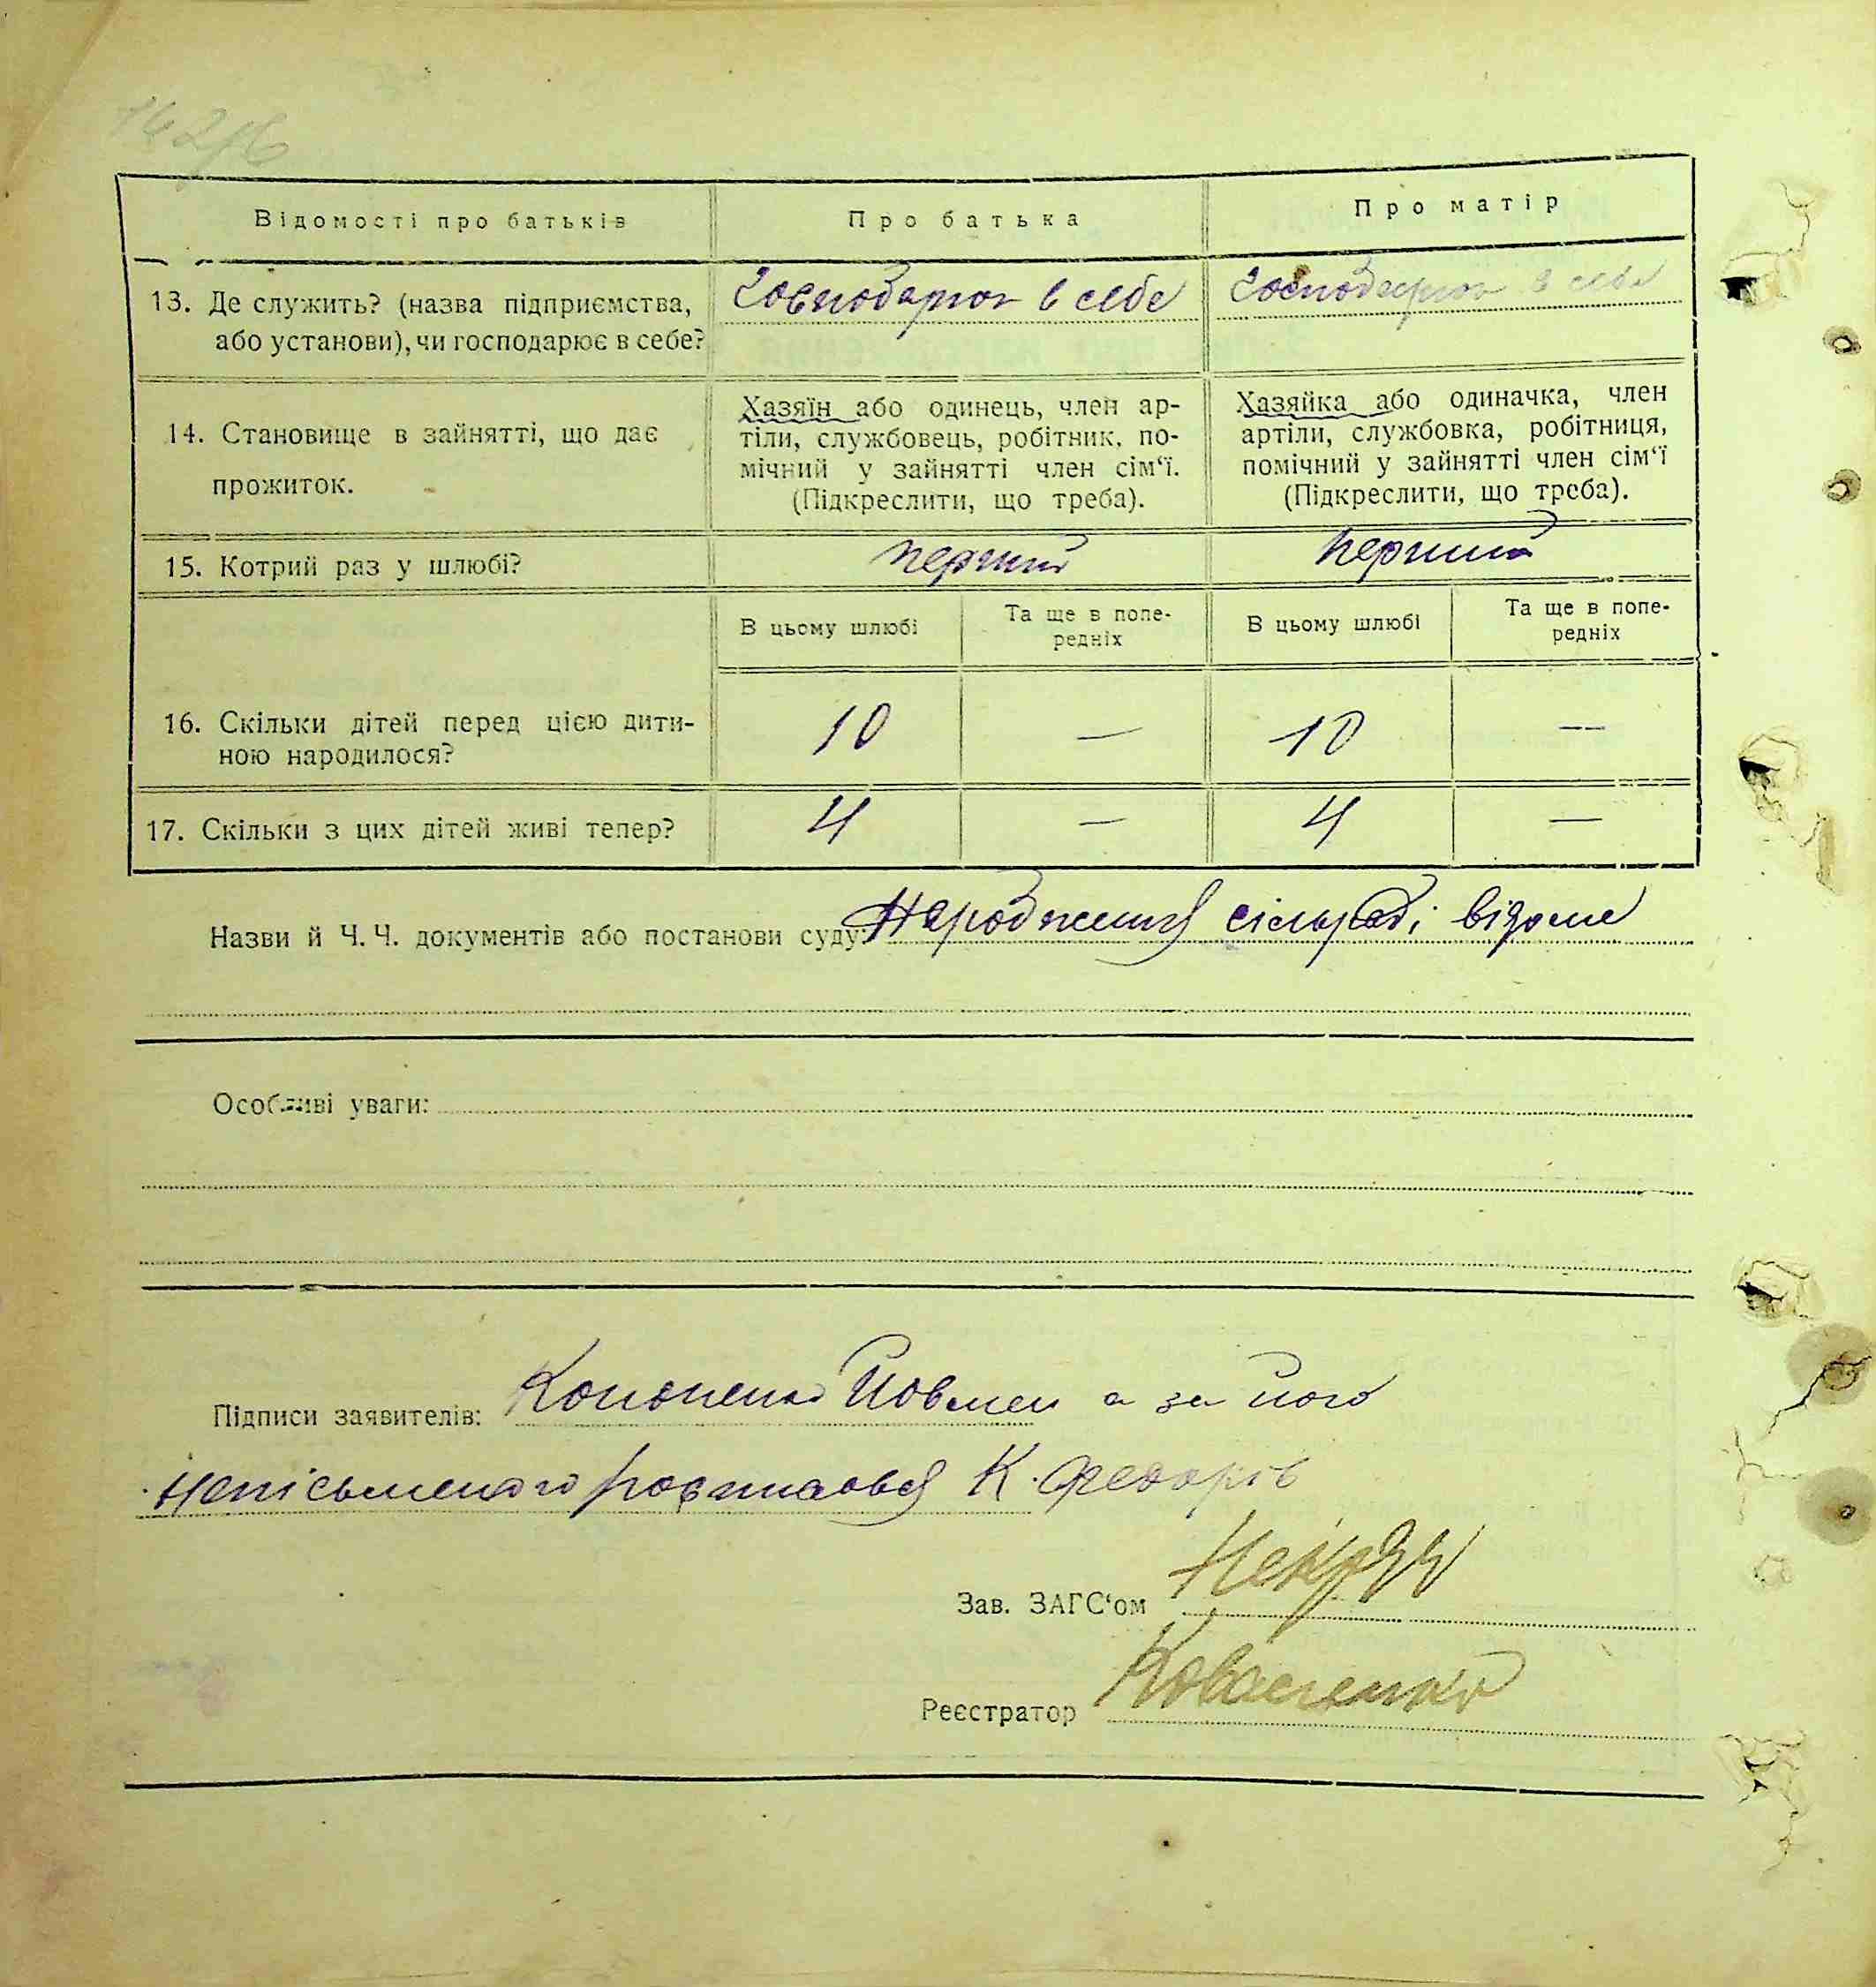 Відомості про батьків
Про батька
Про матір
13. Де служить? (назва підприємства, або установи), чи господарює в себе?
Господарює в себе
Господарює в себе
14. Становище в зайнятті, що дає прожиток.
Хазяїн або одинець, член ар-
тіли, службовець, робітник, по-
мічний у зайнятті член сім‘ї.
(Підкреслити, що треба).
Хазяйка або одиначка, член
артіли, службовка, робітниця,
помічний у зайнятті член сім‘ї
(Підкреслити, що треба).
15. Котрий раз у шлюбі?
перший
перший
В цьому шлюбі
Та ще в попе-
редніх
В цьому шлюбі
Та ще в попе-
редніх
16. Скільки дітей перед цією дити-
ною народилося?
10 — 10 —
17. Скільки з цих дітей живі тепер?
4 — 4 —
Назви й Ч. Ч. документів або постанови суду: Народження сільраді відоме
Особливі уваги:
Підписи заявителів: Кононенко а за його
непісьменого К. Федорів
Зав. ЗАГС‘ом
Реєстратор Коваленко